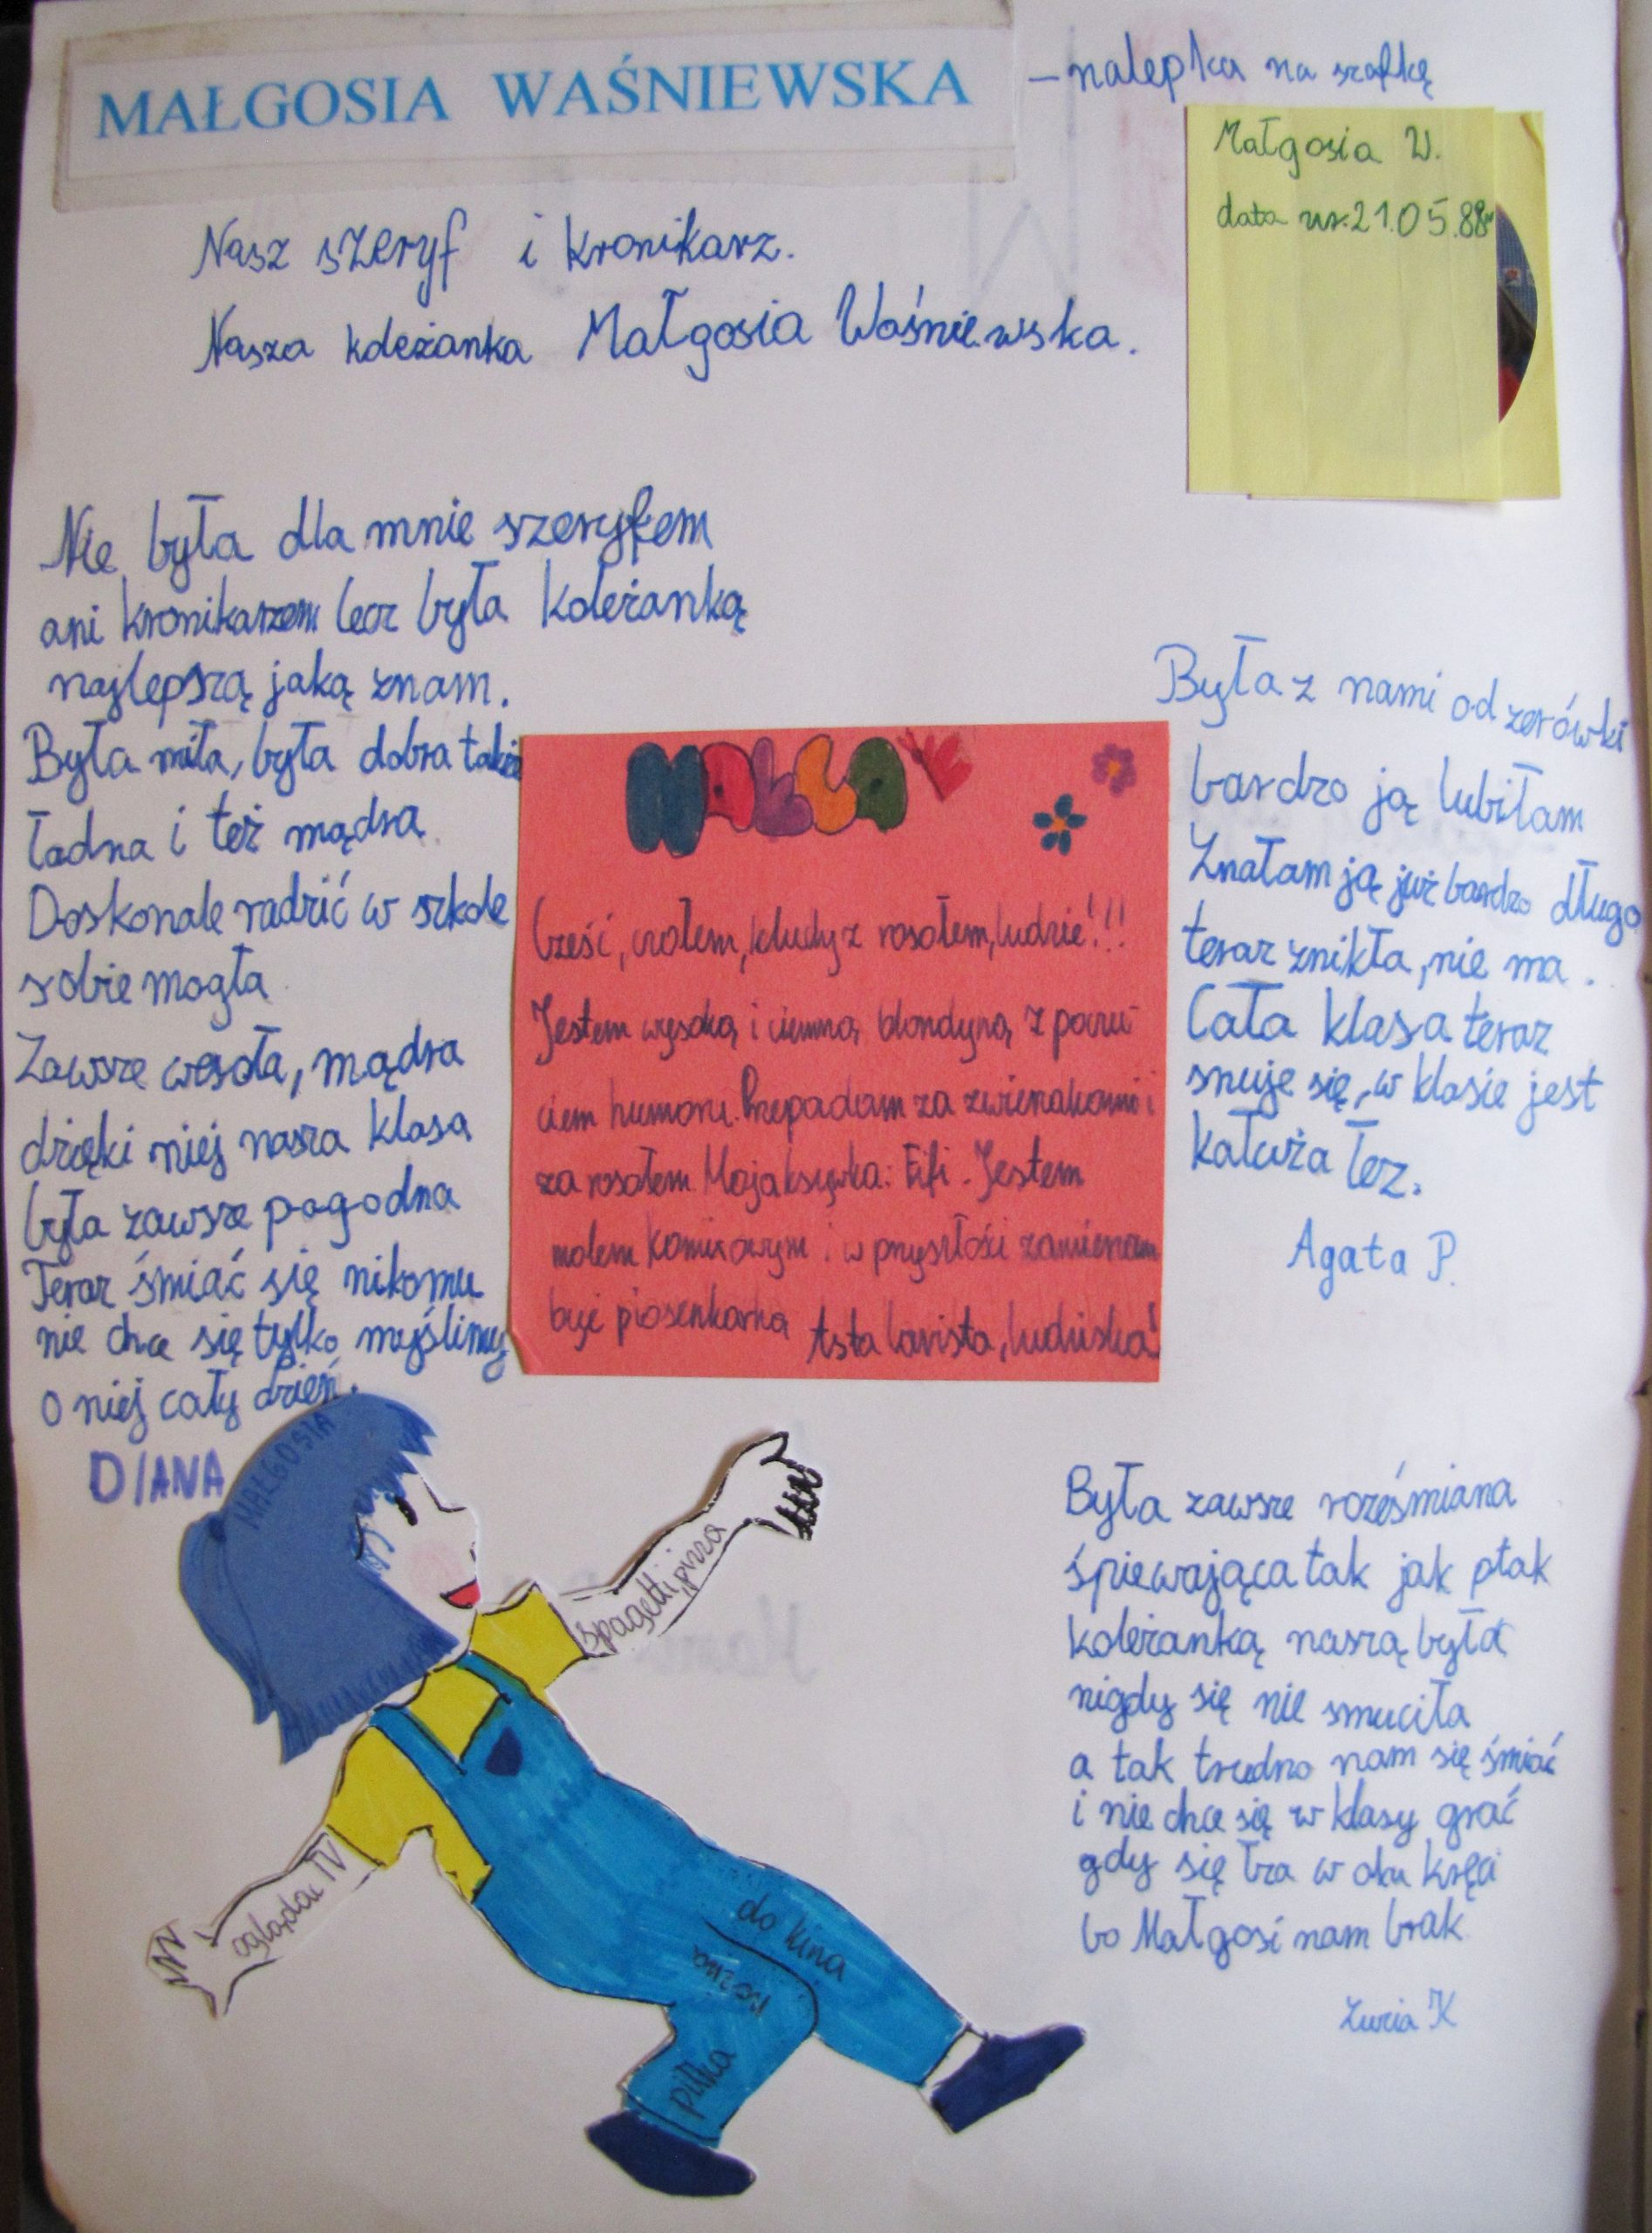 MAŁGOSIA WAŚNIEWSKA
– nalepka na szafkę
Małgosia W.
data ur. 21.05.88
Nasz szeryf i kronikarz.
Nasza koleżanka Małgosia Waśniewska.
Nie była dla mnie szeryfem
ani kronikarzem lecz była koleżanką
najlepszą jaką znam.
Była miła, była dobra także
ładna i też mądra
Doskonale radzić w szkole
sobie mogła
Zawsze wesoła, mądra
dzięki niej nasza klasa
była zawsze pogodna
Teraz śmiać się nikomu
nie chce się tylko myślimy
o niej cały dzień.
DIANA
Cześć, czołem, kludy z rosołem, ludzie!!!
Jestem wysoką i ciemną blondyną z poczu-
ciem humoru. Przepadam za zwierzakami i
za rosołem. Moja ksywka: Fifi. Jestem
molem komixowym i w przyszłości zamierzam
być piosenkarką
Asta lavista, ludziska!
Była z nami od zerówki
bardzo ją lubiłam
Znałam ją już bardzo długo
teraz znikła, nie ma.
Cała klasa teraz
snuje się, w klasie jest
kałuża łez.
Agata P.
Była zawsze roześmiana
śpiewająca tak jak ptak
koleżanką naszą była
nigdy się nie smuciła
a tak trudno nam się śmiać
i nie chce się w klasy grać
gdy się łza w oku kręci
bo Małgosi nam brak
Zuzia K
MAŁGOSIA
spagetti, pizza
oglądać TV
do kina
nożna
piłka